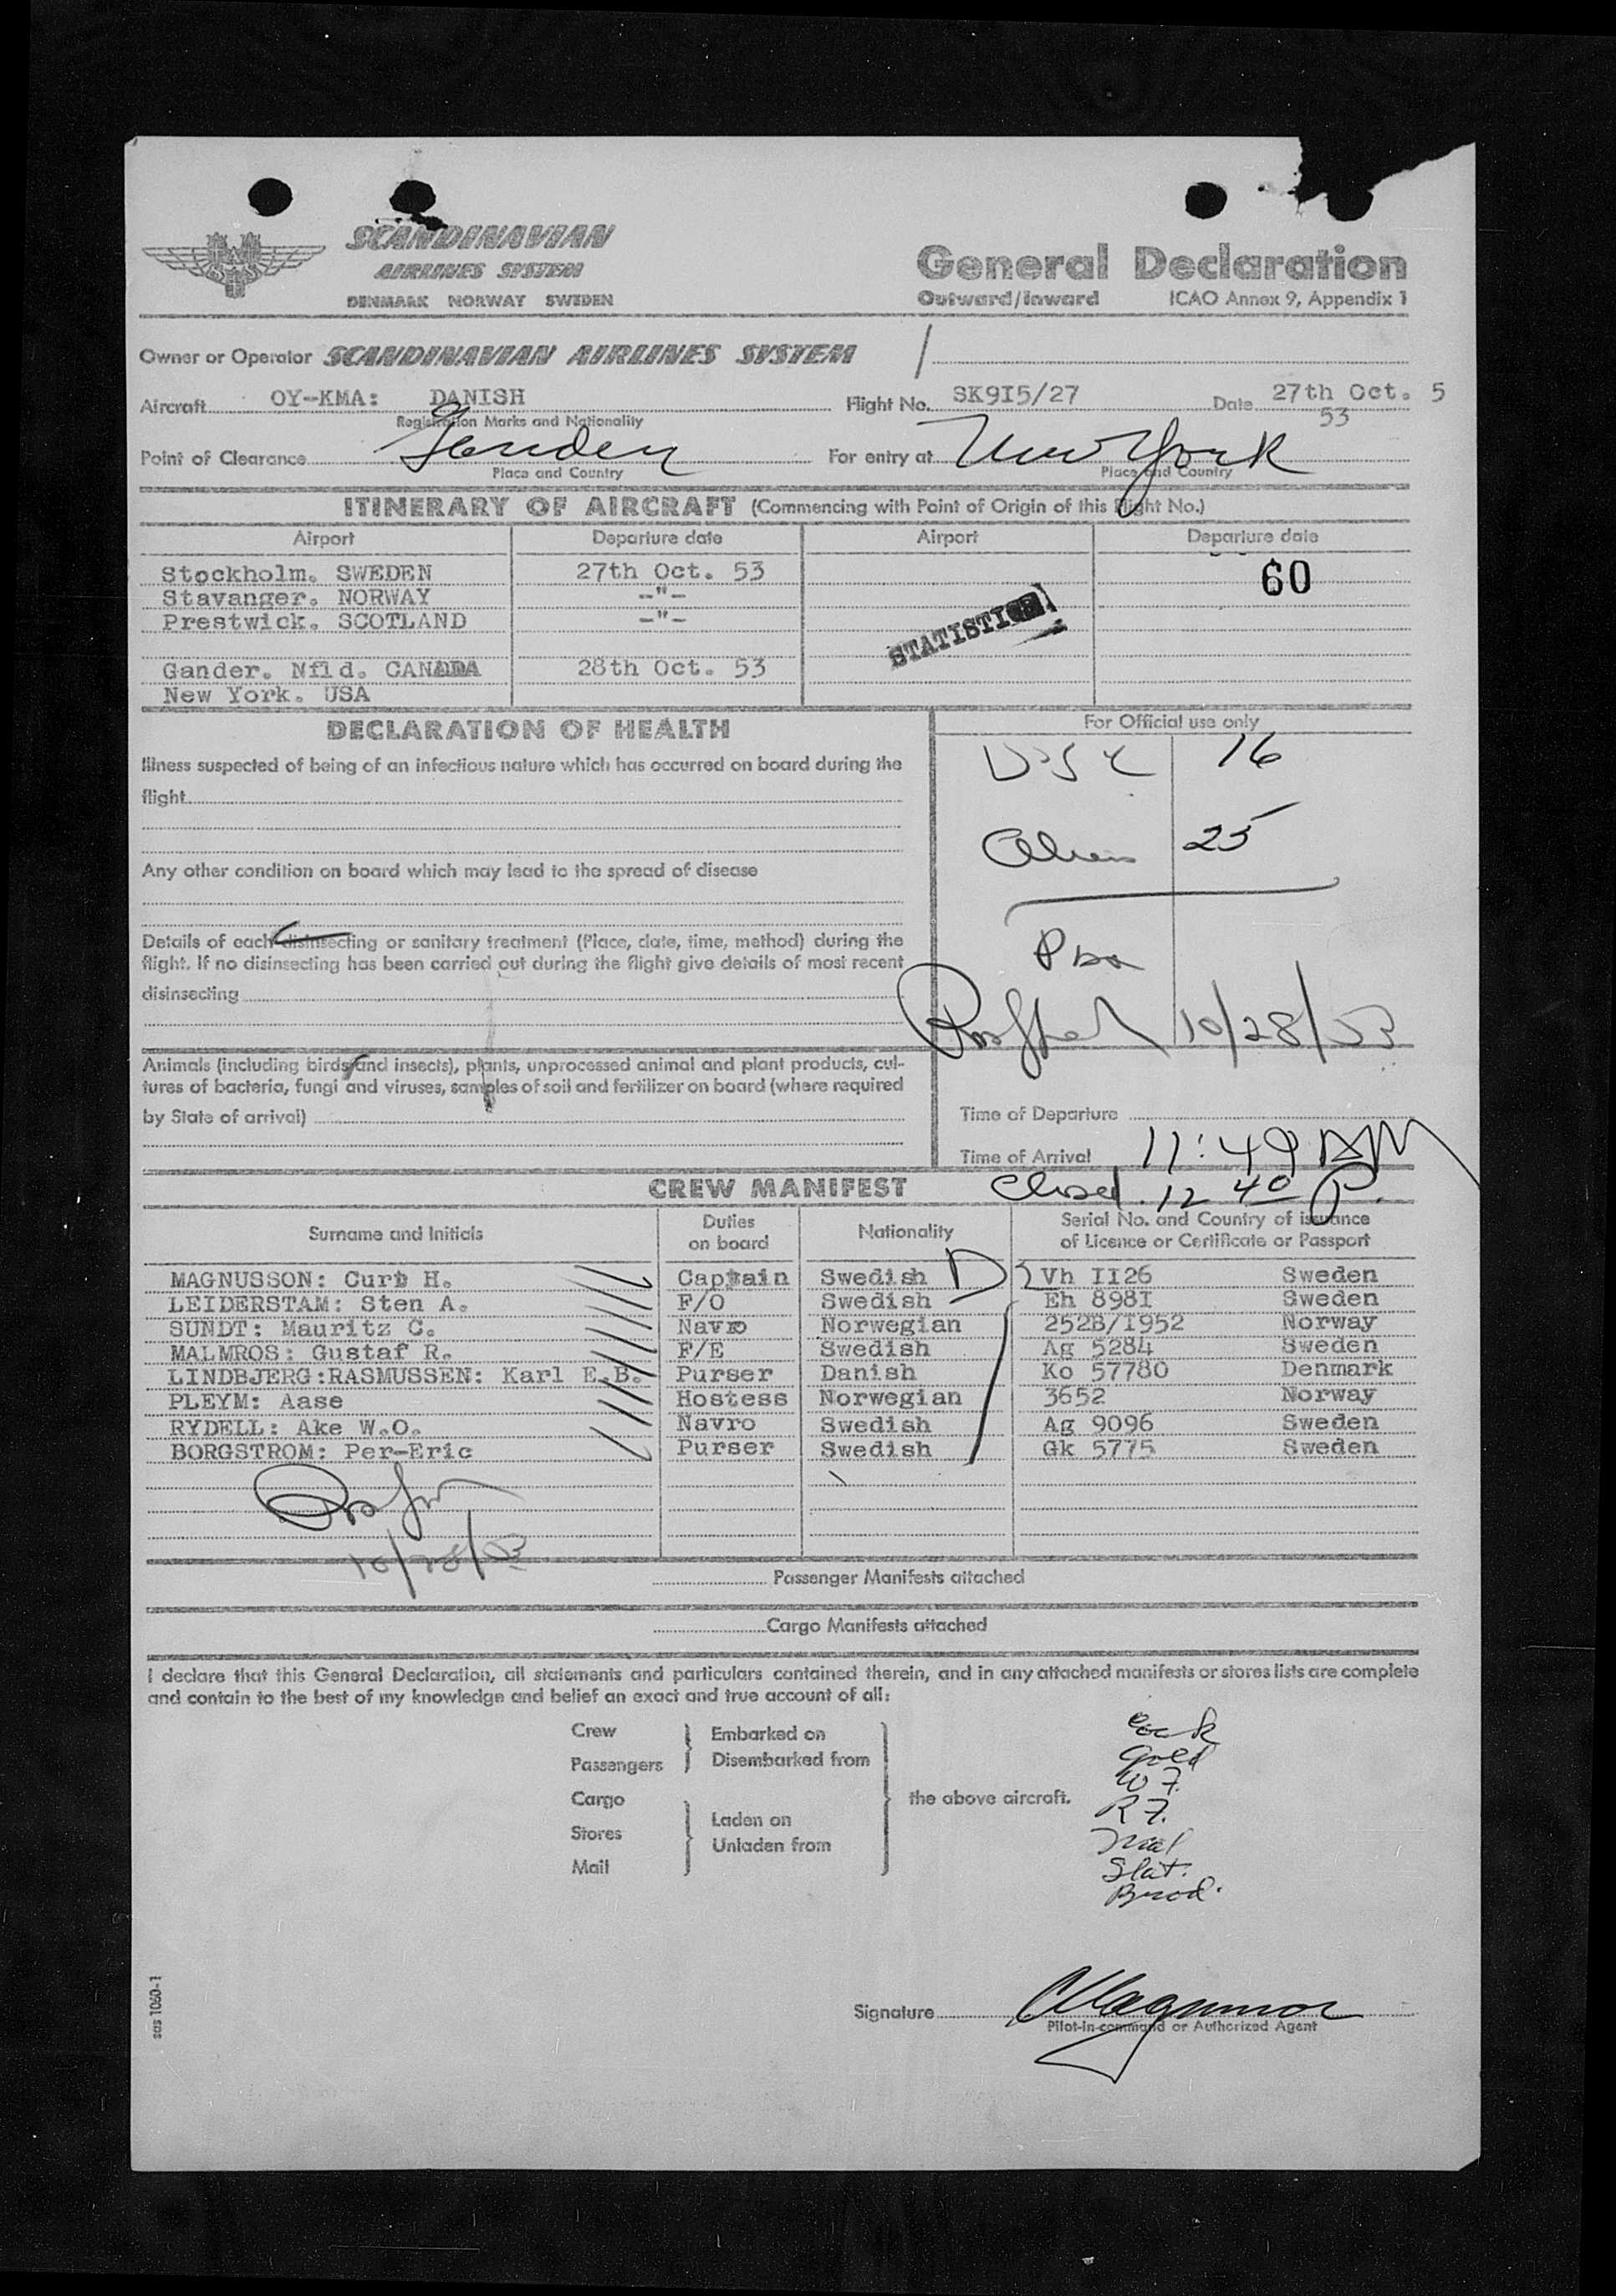 SCANDINAVIAN
AIRLINES SYSTEM
DENMARK NORWAY SWEDEN
General Declaration
Outward/Inward ICAO Annex 9, Appendix 1
Owner or Operator SCANDINAVIAN AIRLINES SYSTEM
Aircraft OY-KMA: DANISH Flight No. SK9I5/27 Date 27th Oct. 5
53
Registration Marks and Nationality
Point of Clearance Gander For entry at New York
Place and Country Place and Country
ITINERARY OF AIRCRAFT (Commencing with Point of Origin of this Flight No.)
Airport Departure date Airport Departure date
Stockholm. SWEDEN 27th Oct. 53 60
Stavanger. NORWAY -"-
Prestwick. SCOTLAND -"-
STATISTICS
Gander. Nfld. CANADA 28th Oct. 53
New York. USA
DECLARATION OF HEALTH
Illness suspected of being of an infectious nature which has occurred on board during the
flight
Any other condition on board which may lead to the spread of disease
Details of each disinsecting or sanitary treatment (Place, date, time, method) during the
flight. If no disinsecting has been carried out during the flight give details of most recent
disinsecting
Animals (including birds and insects), plants, unprocessed animal and plant products, cul-
tures of bacteria, fungi and viruses, samples of soil and fertilizer on board (where required
by State of arrival)
For Official use only
16
25
10/28/53
Time of Departure
Time of Arrival 11:49 AM
Closed 12 40 P.
CREW MANIFEST
Surname and Initials Duties on board Nationality Serial No. and Country of issuance
of Licence or Certificate or Passport
MAGNUSSON: Curt H. Captain Swedish D Vh II26 Sweden
LEIDERSTAM: Sten A. F/O Swedish Eh 898I Sweden
SUNDT: Mauritz C. Navro Norwegian 252B/I952 Norway
MALMROS: Gustaf R. F/E Swedish Ag 5284 Sweden
LINDBJERG:RASMUSSEN: Karl E.B. Purser Danish Ko 57780 Denmark
PLEYM: Aase Hostess Norwegian 3652 Norway
RYDELL: Ake W.O. Navro Swedish Ag 9096 Sweden
BORGSTROM: Per-Eric Purser Swedish Gk 5775 Sweden
10/28/53
Passenger Manifests attached
Cargo Manifests attached
I declare that this General Declaration, all statements and particulars contained therein, and in any attached manifests or stores lists are complete
and contain to the best of my knowledge and belief an exact and true account of all:
Crew
Passengers
Cargo
Stores
Mail
Embarked on
Disembarked from
Laden on
Unladen from
the above aircraft.
Gold
W F.
R F.
Stat.
Brod.
Signature CMagnusson
Pilot-in-command or Authorized Agent
sas 1060-1